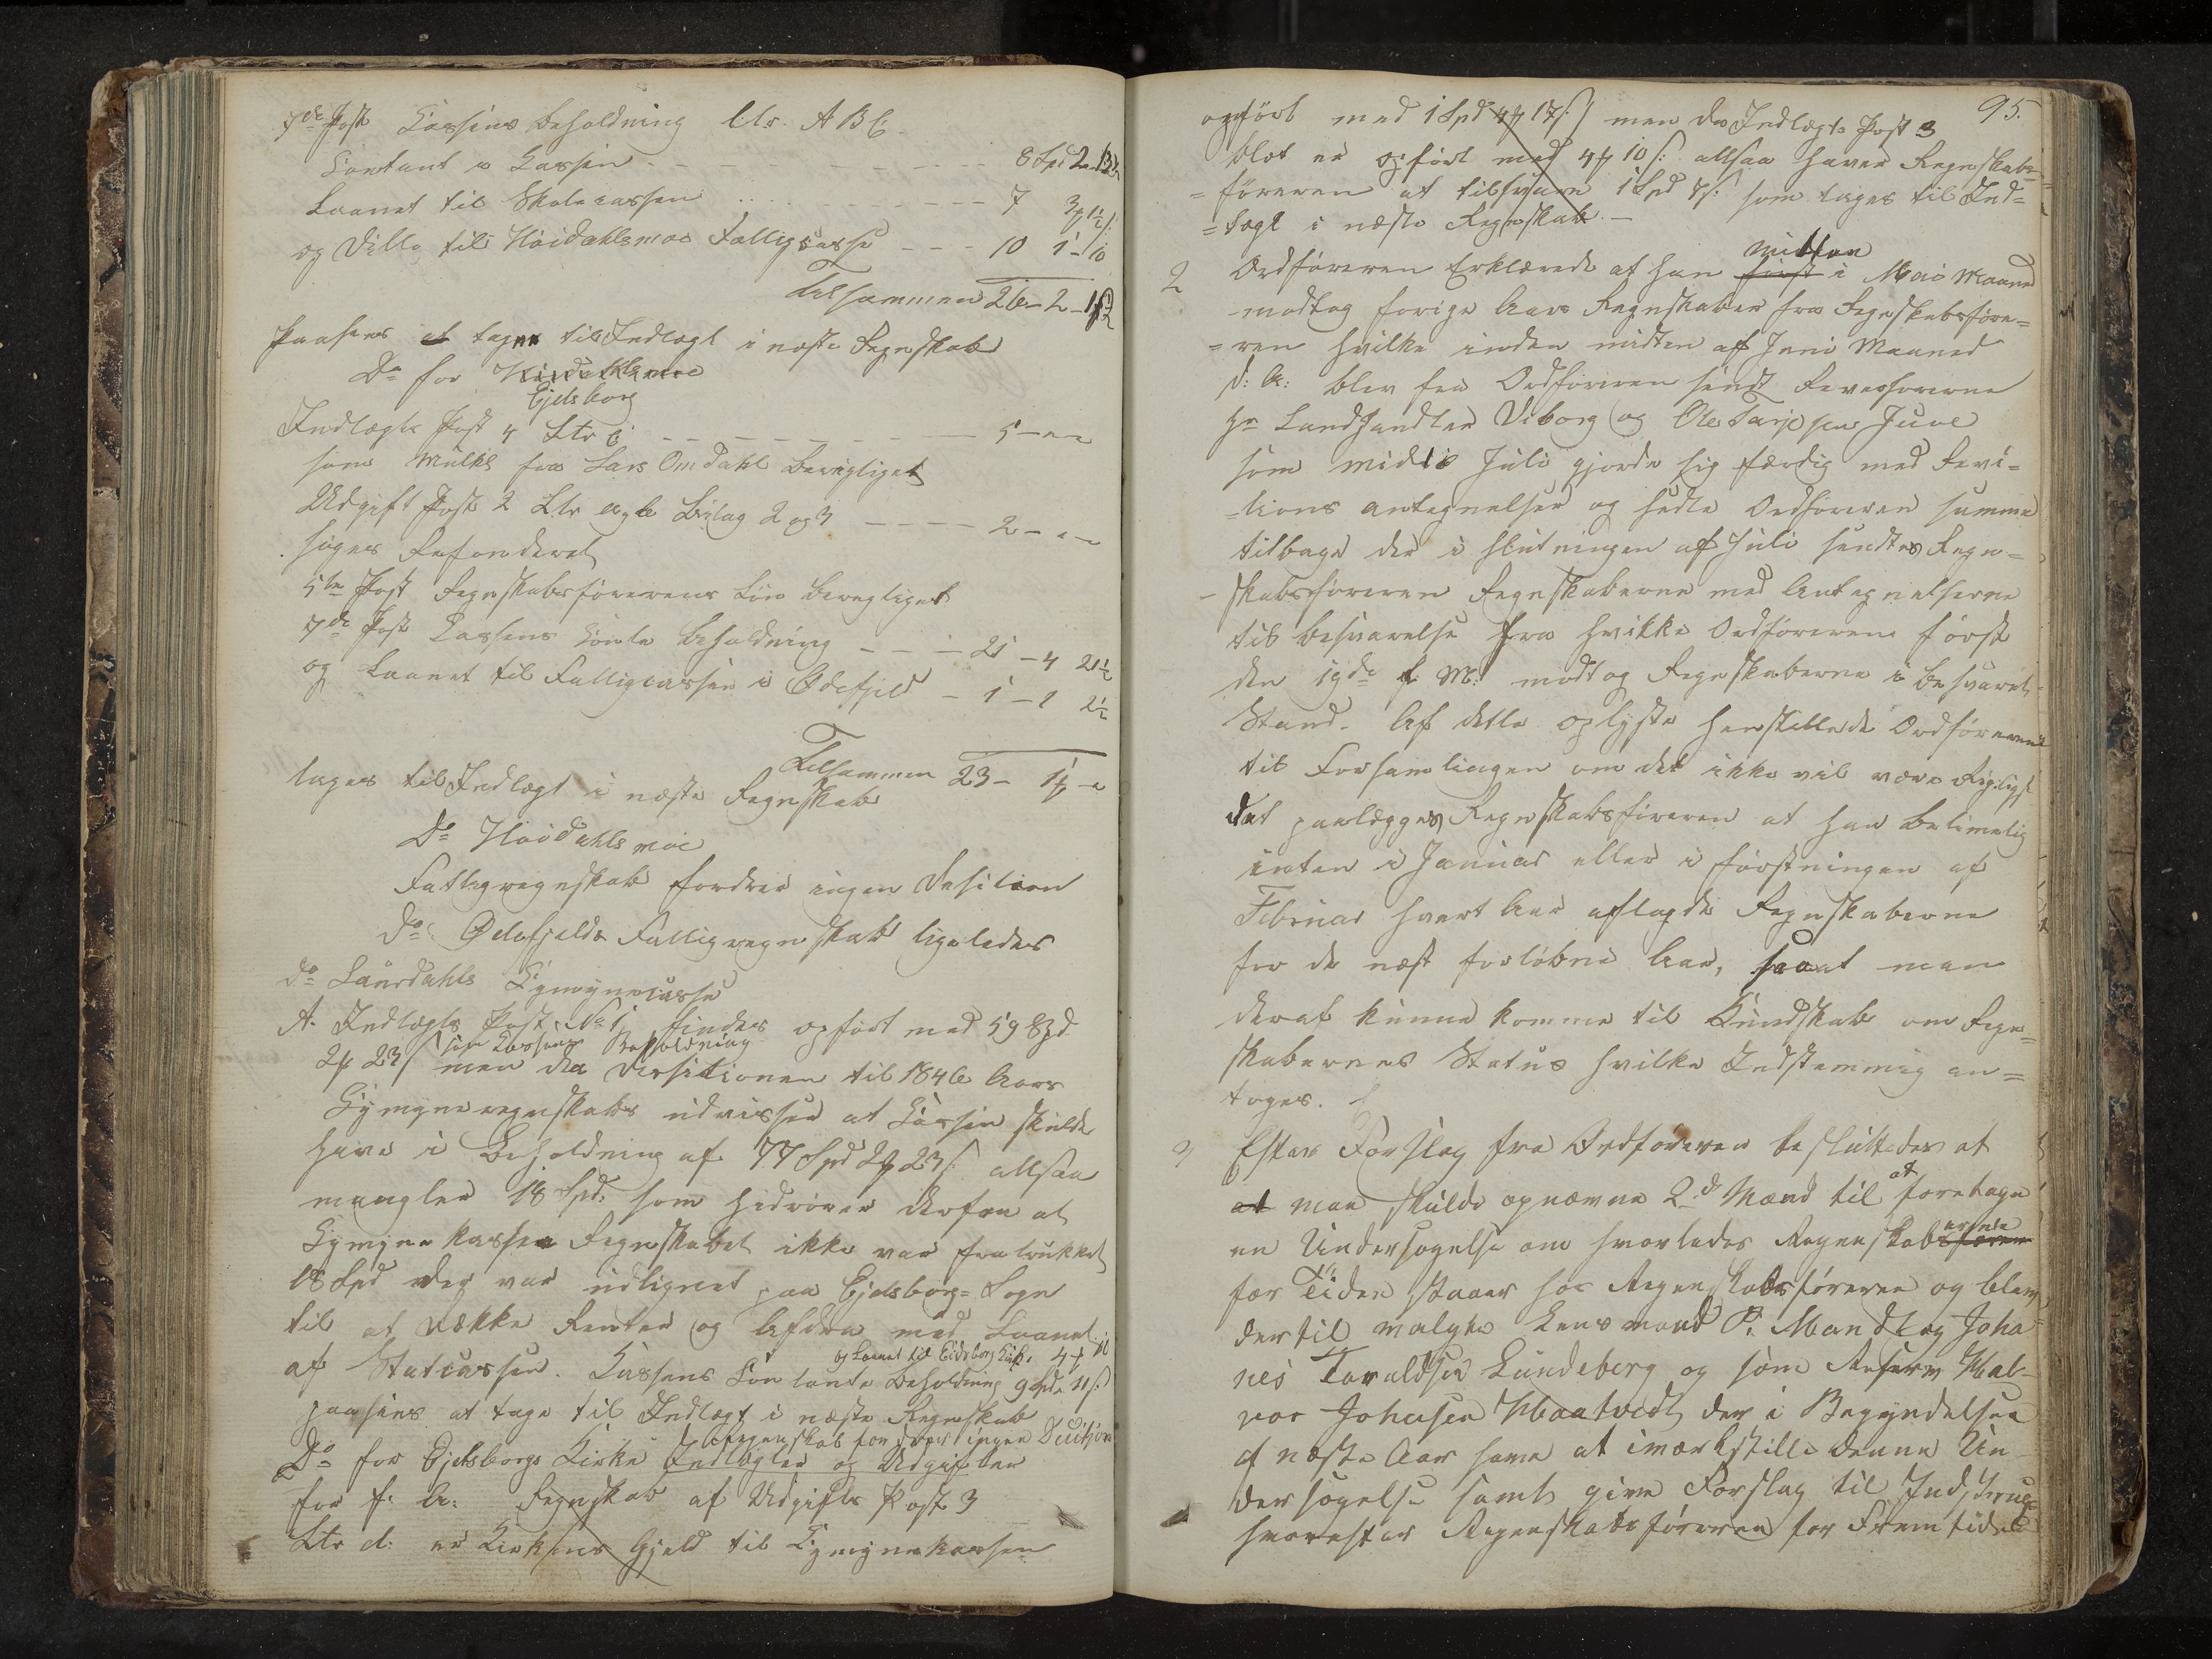 7de Post Cassens beholdning Ltr. A B C.
Contant i Cassen - - - 8 Spd 2
Laanet til Skolecassen - - - 7 3 1½
og Ditto til Høidahlsmoe Fattigcasse - - - 10 1 - 10
Tilsammen 26 - 2 -
Paasees at tages til Indtægt i næste Regnskab
Do for Høidahlsmoe
Ejdsborg
Indtægts Post 4 Ltr C - - - 5 - " - "
som Mulkt fra Lars Omdahl berigtiget
Udgift Post 2 Ltr a og b Bilag 2 og 3 - - - 2 - " - "
søges Refunderet
5te Post Regnskabsførerens Løn berigtiget
7de Post Cassens Contante beholdning - - - 21 - 4 21½
og Laanet til Fattigcassen i Ødefjeld - 1 - 1 2½
Tilsammen 23 - 1 - "
tages til Indtægt i næste Regnskab
Do Høidahlsmoe
Fattigregnskab fordrer ingen Desition
Do Ødefjelds Fattigregnskab ligeledes
Do Laurdahls Comunecasse
A. Indtægts Post No 1 findes opført med 59 Spd
som Cassens Beholdning
2 23 men da Desitionen til 1846 Aars
Comuneregnskab udviser at Cassen skulde
have i Beholdning af 77 Spd 2 23 s: altsaa
mangler 18 Spd: som hidrører derfra at
Comunekassen Regnskabet ikke var fratrukket
18 Spd der var udlignet paa Ejdsborg Sogn
til at dække Renter og Afdra med Laanet
af Statcassen. Cassens Contante Beholdning 9 Spd 11 s:
og Laanet til Eidsborg Kirk. 4 10
paasees at tage til Indtægt i næste Regnskab
Regnskab fordrer ingen Decition
Do for Ejdsborgs Kirke Indtægter og Udgifter
for f. A: Regnskab af Udgifts Post 3
Ltr d: er Kirkens Gjeld til Comunekassen
95.
opført med 1 Spd 4 17 s: men da Indtægts Post 3
blot er opført med 4 10 s: altsaa haver Regnskabs=
=føreren at tilsvare 1 Spd 7 s: som tages til Ind=
=tægt i næste Regnskab. -
midten
2 Ordføreren Erklærede at han først i Mai Maaned
modtog forige Aars Regnskaber fra Regnskabsføre=
=ren hvilke inden midten af Juni Maaned
d: A: blev fra Ordføreren sendt Revisorerne
Hr Landhandler Viborg og Ole Tarjesen Juve
som midt i Juli gjorde sig færdig med Revi=
=tions antegnelser og sendte Ordføreren samme
tilbage der i slutningen af Juli sendtes Regn=
-skabsføreren Regnskaberne med Antegnelserne
til besvarelse fra hvilke Ordføreren først
den 19de f. M: modtog Regnskaberne i besvaret
Stand. Af dette oplyste henstillede Ordføreren
til Forsamlingen om det ikke vil være Rigtigst
det paalægges Regnskabsføreren at han betimelig
inten i Januar eller i førstningen af
Februar hvert Aar aflagde Regnskaberne
for de næst forløbne Aar, saaat man
deraf kunne komme til Kundskab om Regn=
skabernes Status hvilke Endstemmig an=
toges.
3 Efter Forslag fra Ordføreren besluttedes at
at man skulde opnævne 2de Mænd til at foretage
en Undersøgelse om hvorledes Regnskaberne
for Tiden staaer hos Regnskabsføreren og blev
dertil valgte Lensmand P. Mandt og Joha
nes Taraldsen Lundeberg og som Reserv Hal-
vor Johnsen Haatvedt der i Begyndelsen
af næste Aar have at iværkstille denne Un-
dersøgelse samt give Forslag til Indstrux
hvorefter Regnskabsføreren for Fremtiden